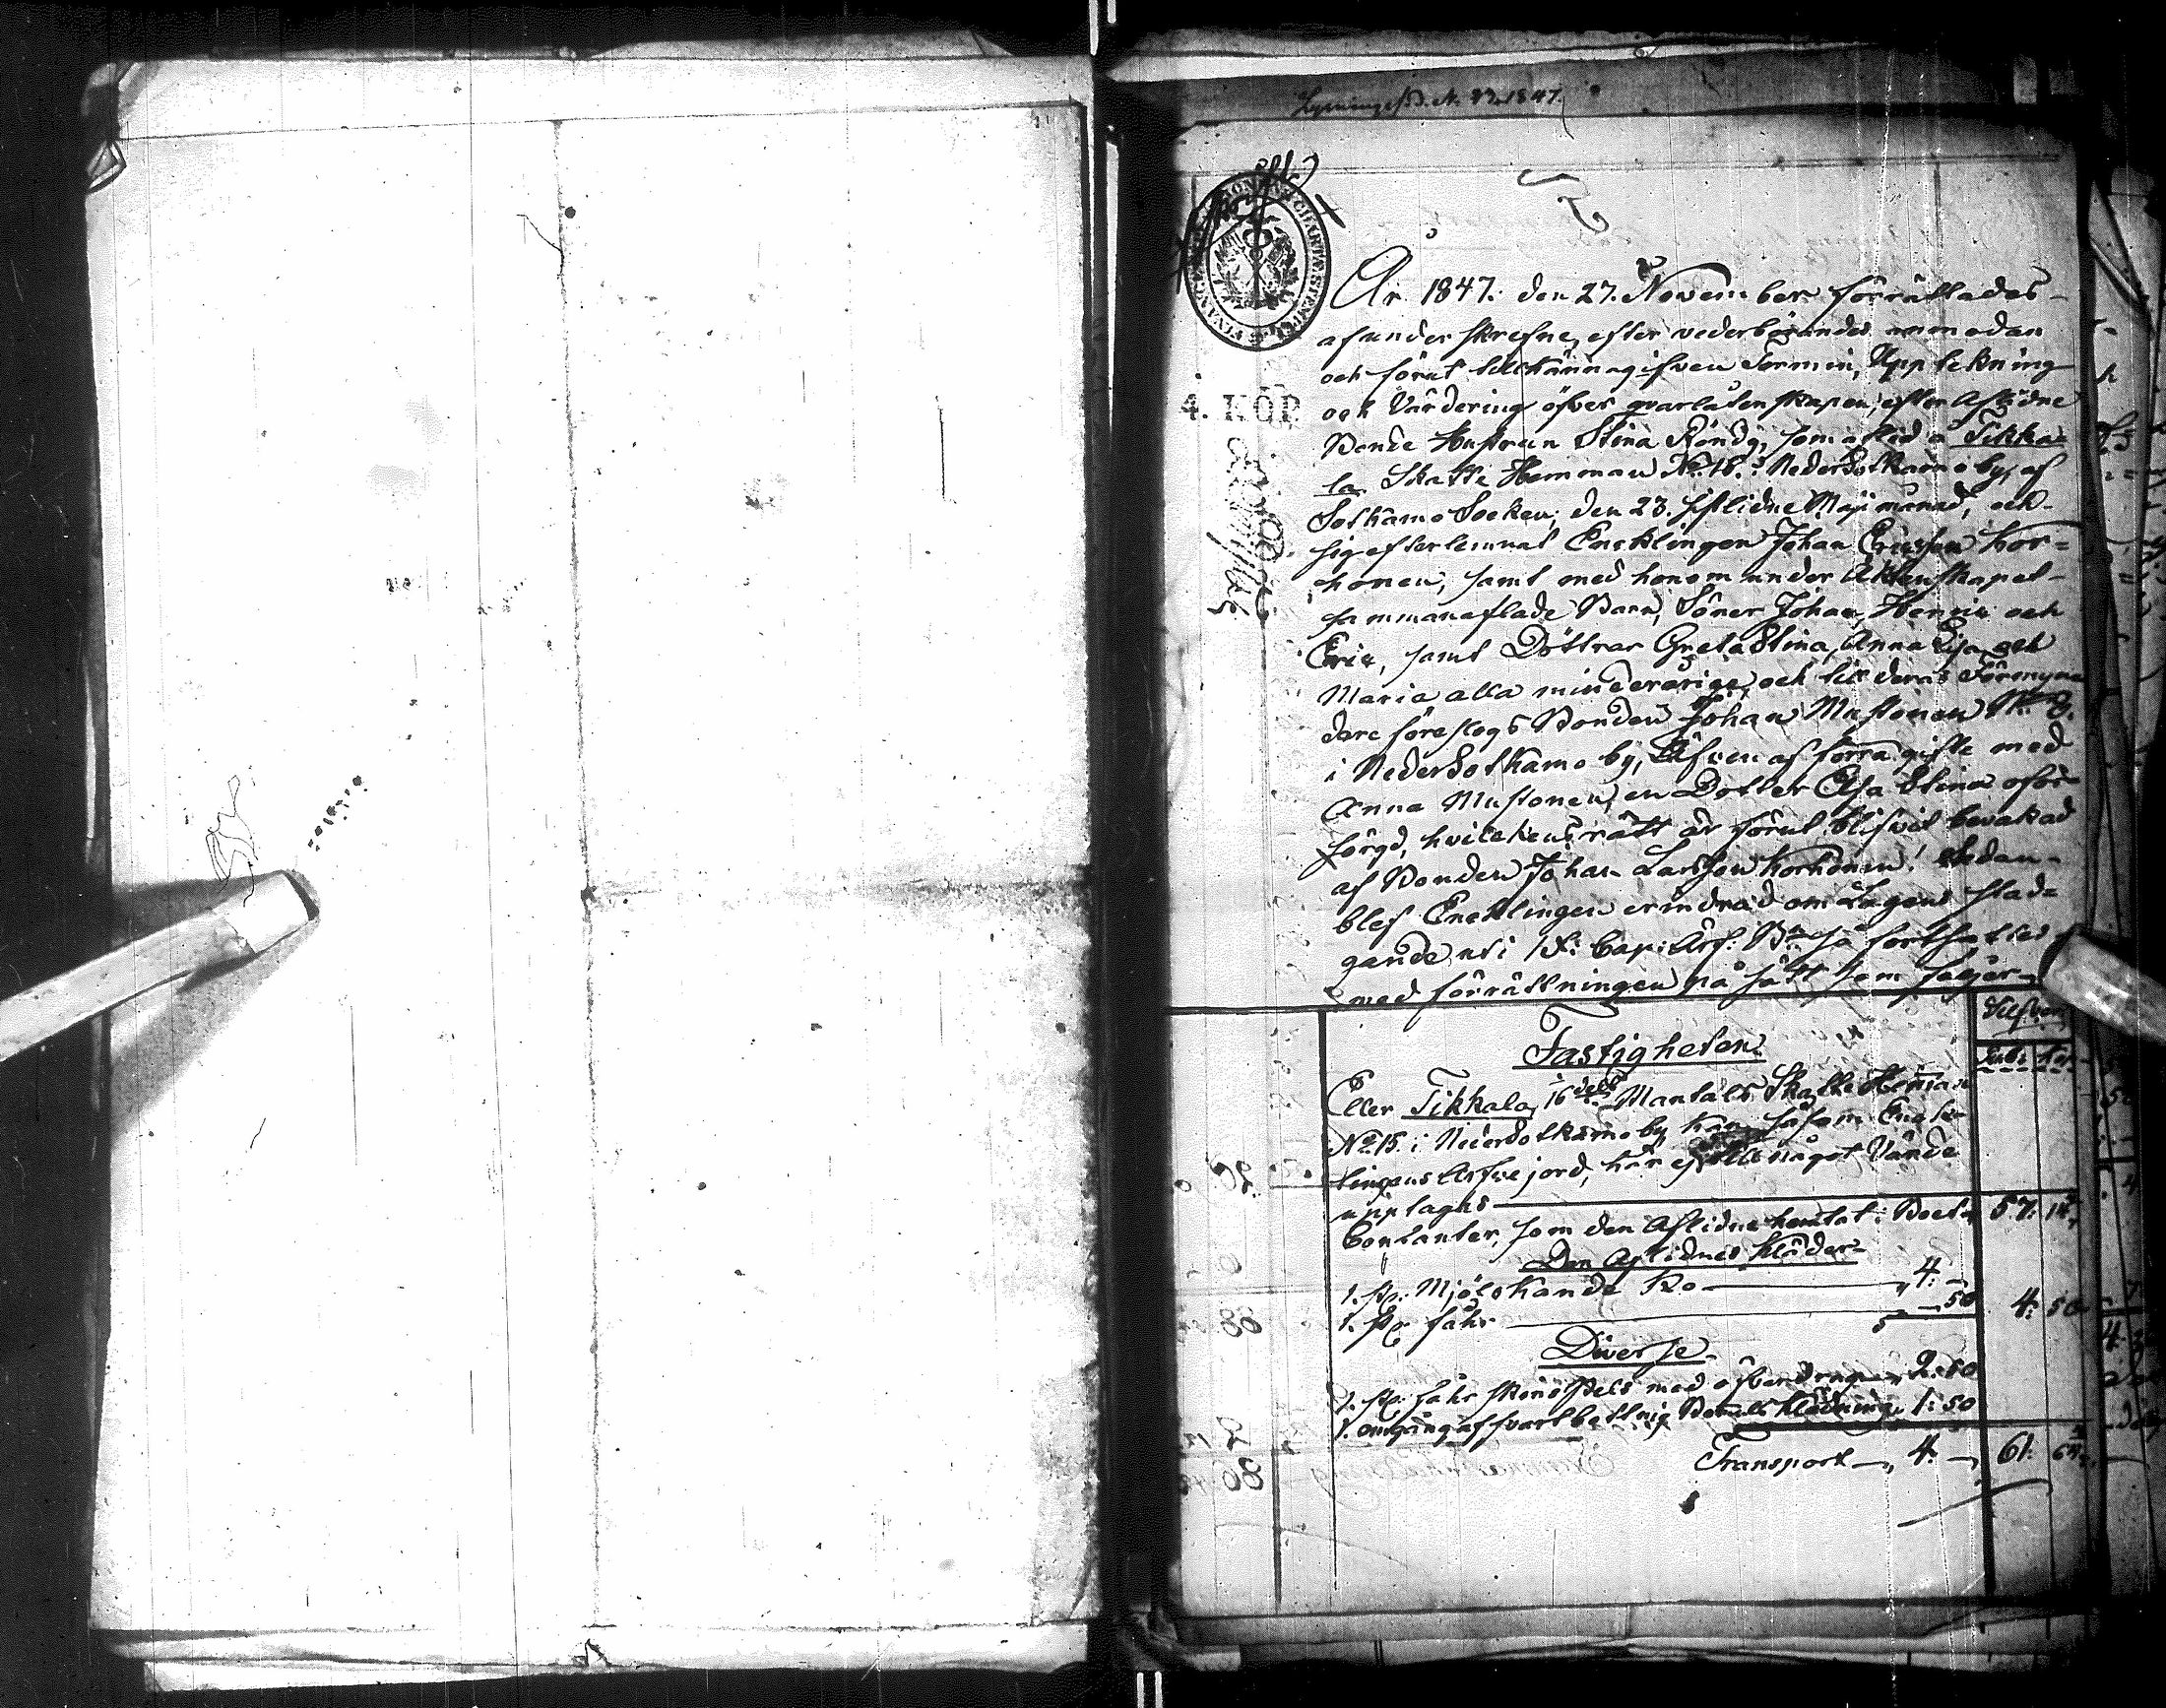 4. KOP
År 1847. den 27. November förrättades
af under skrefne, efter vederbörandes anmodan
och förut tillkännagifven Termin, Uppteckning
och Värdering öfver qvarlåtenskapen efter Aflidne
Bonde Hustrun Stina Röndy, som afled å Tikka-
la Skatte Hemman No 15. i NederSotkamo by, af
Sotkamo Socken, den 23. sistlidne Maji månad, och
sig efterlemnat Encklingen Johan Ericsson Kor-
honen, samt med honom under Äktenskapet
sammanaflade Barn, Söner Johan, Henric och
Eric, samt Döttrar Greta Stina, Anna Lisa och
Maria alla minderårige, och till deras Förmyn-
dare föreslogs Bonden Johan Mustonen No 8.
i NederSotkamo by, Äfven af förra gifte med
Anna Mustonen, en Dotter Elsa Stina oför-
sörgd, hvilckens rätt är förut blifvit bevakad
af Bonden Johan Larsson Korhonen! Sedan
blef Encklingen erindrad om Lagens stad-
gande uti Cap: Ärf: Bn så fortsattes
med förrättningen på sätt som följer
Silfver
Rub: Kop
Fastigheten
Eller Tikkala, 16 dels Mantals Skatte Heman
No 15. i NederSotkamo by kan såsom Enck-
lingens Arfvejord, här ej till något Värde
upptagas
Contanter, som den Aflidne hemtat i Boet 57: 14
Den Aflidnes Kläder
1. st. Mjölkande Ko 4: —
1. st. fåhr — 50 4: 50
Diverse
1. st. fåhr skins Pels med öfverdrag 2: 50
1. omgång af svart Klädning 1: 50
Transport 4: — 61: 64